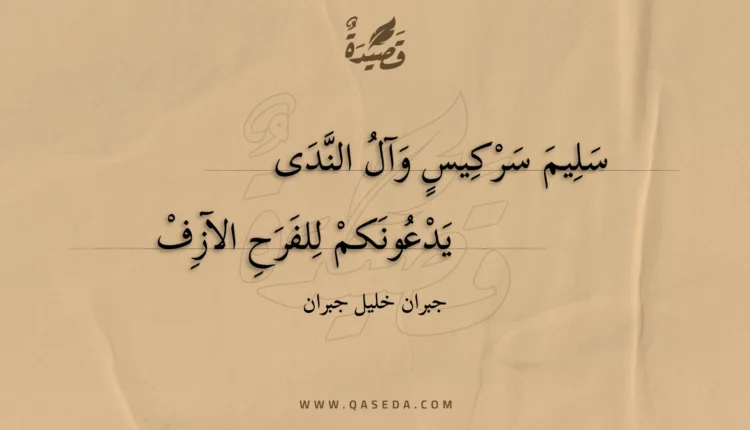 قَصِيدَةٌ
سَلِيمَ سَرْكِيسٍ وَآلُ النَّدَى
يَدْعُونَكمْ لِلفَرَحِ الآزِفْ
جبران خليل جبران
WWW.QASEDA.COM